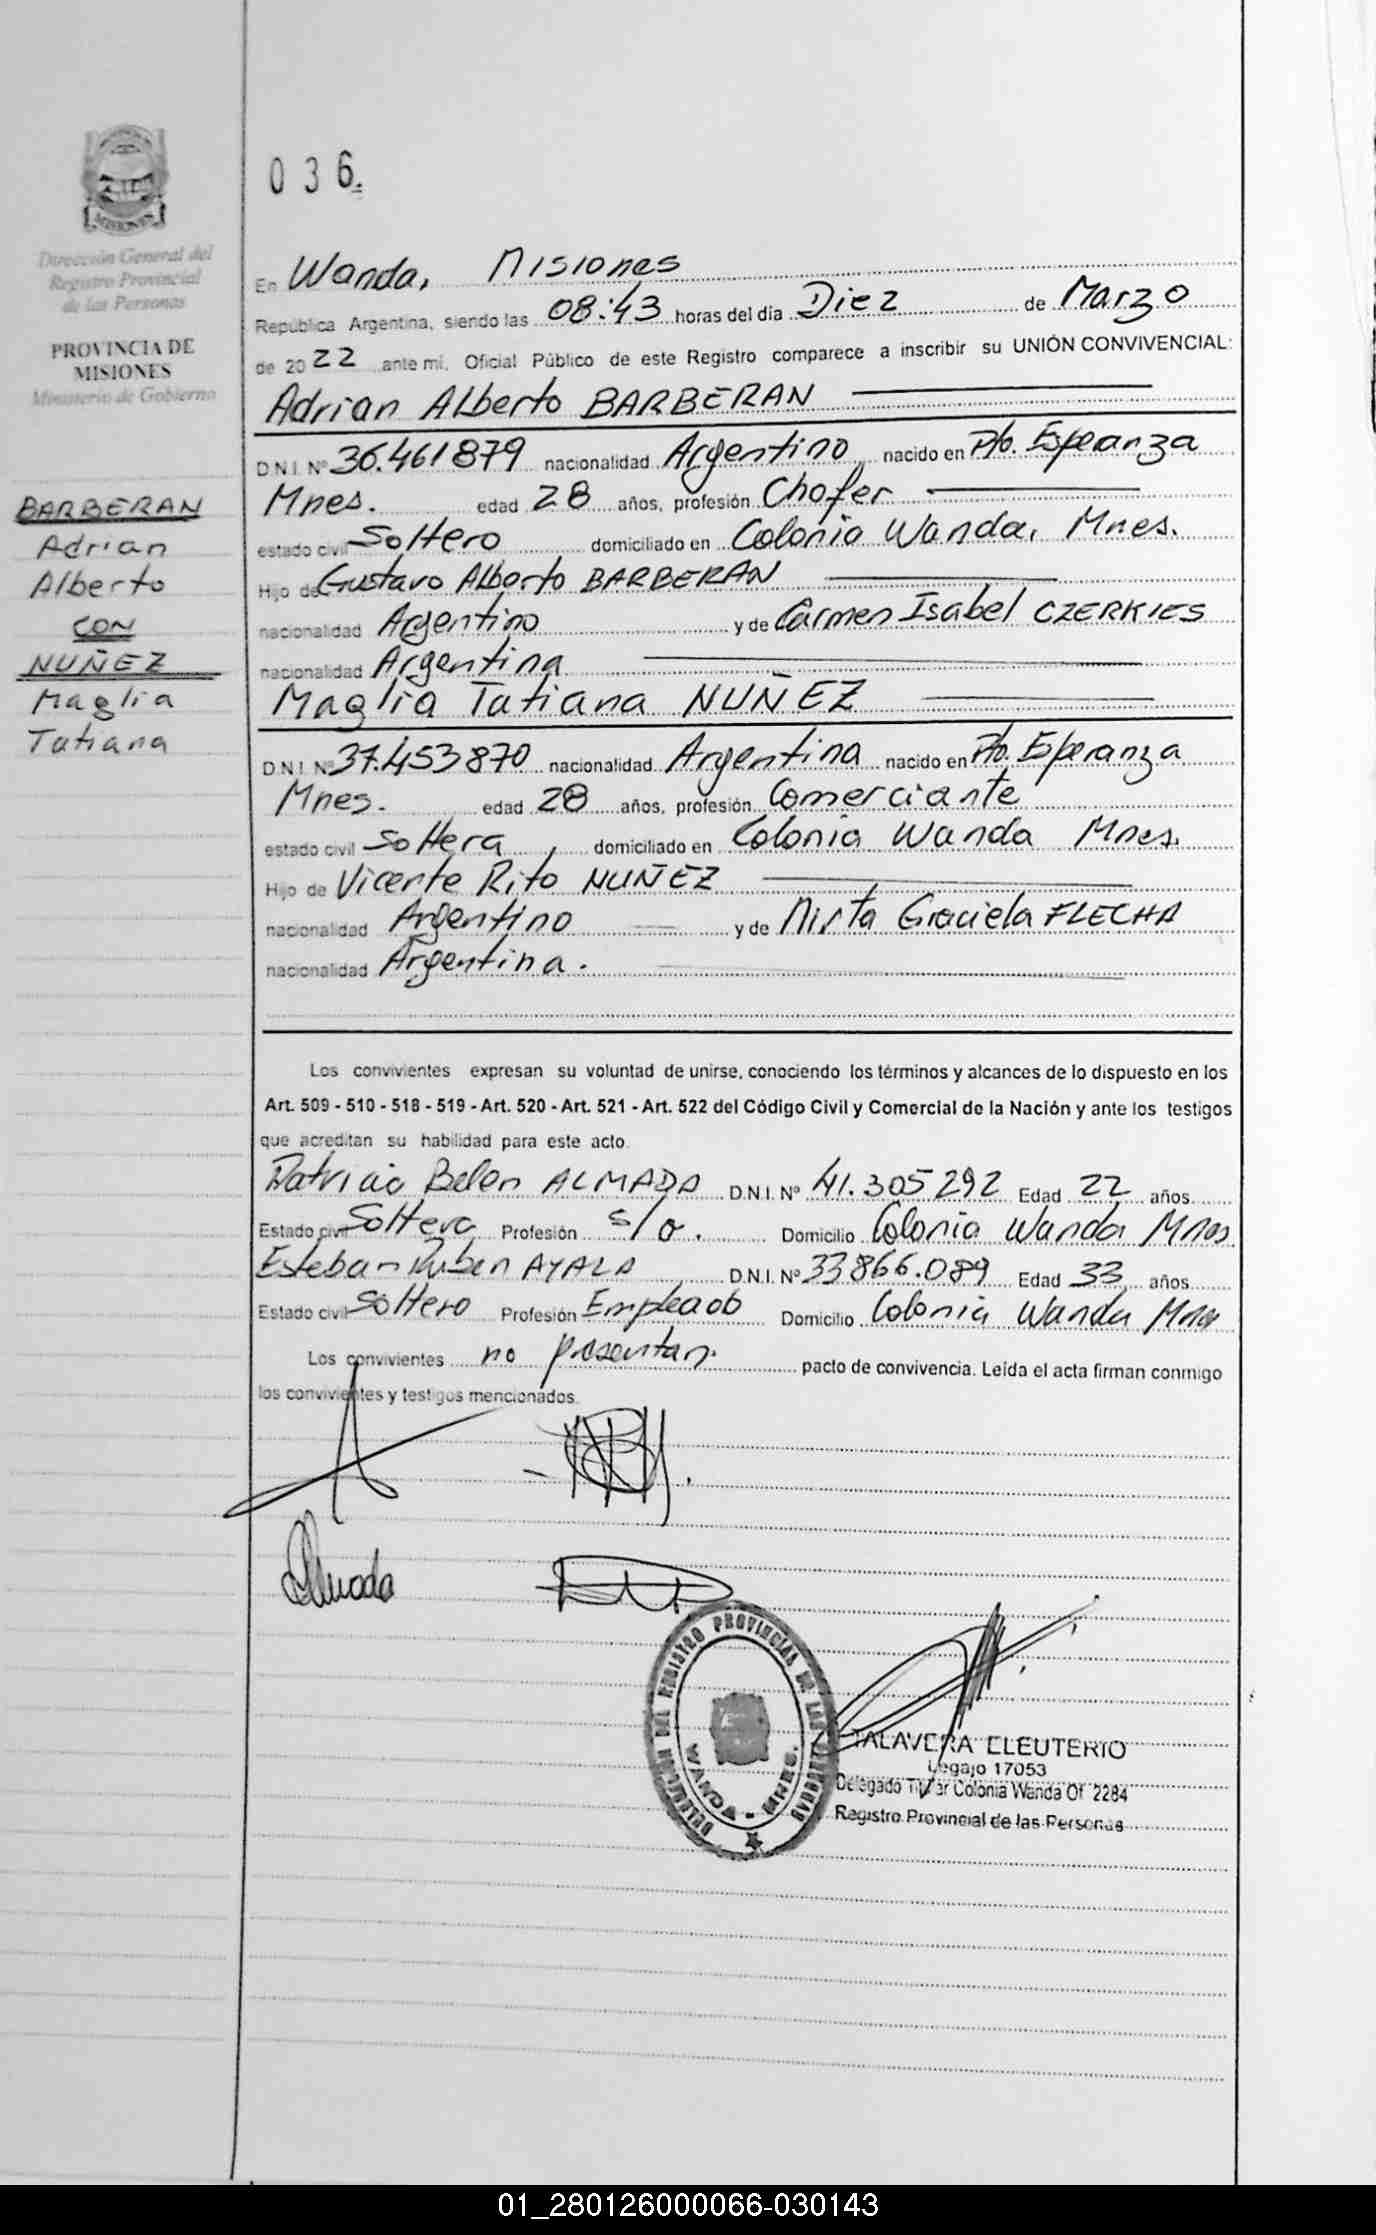 MISIONES
Dirección General del
Registro Provincial
de las Personas
PROVINCIA DE
MISIONES
Ministerio de Gobierno
BARBERAN
Adrian
Alberto
CON
NUÑEZ
Maglia
Tatiana
036.
En Wanda, Misiones
República Argentina, siendo las 08:43 horas del día Diez de Marzo
de 2022 ante mi, Oficial Público de este Registro comparece a inscribir su UNIÓN CONVIVENCIAL:
Adrian Alberto BARBERAN
D.N.I. Nº 36.461879 nacionalidad Argentino nacido en Pto. Esperanza
Mnes. edad 28 años, profesión Chofer
estado civil Soltero domiciliado en Colonia Wanda, Mnes.
Hijo de Gustavo Alberto BARBERAN
nacionalidad Argentino y de Carmen Isabel CZERKIES
nacionalidad Argentina
Maglia Tatiana NUÑEZ
D.N.I. Nº 37.453870 nacionalidad Argentina nacido en Pto. Esperanza
Mnes. edad 28 años, profesión Comerciante
estado civil Soltera, domiciliado en Colonia Wanda Mnes.
Hijo de Vicente Rito NUÑEZ
nacionalidad Argentino y de Mirta Graciela FLECHA
nacionalidad Argentina.
Los convivientes expresan su voluntad de unirse, conociendo los términos y alcances de lo dispuesto en los
Art. 509 - 510 - 518 - 519 - Art. 520 - Art. 521 - Art. 522 del Código Civil y Comercial de la Nación y ante los testigos
que acreditan su habilidad para este acto.
Patricia Belen ALMADA D.N.I. Nº 41.305292 Edad 22 años
Estado civil Soltera Profesión s/o. Domicilio Colonia Wanda Mnes.
Esteban Ruben AYALA D.N.I. Nº 33866.089 Edad 33 años
Estado civil Soltero Profesión Empleado Domicilio Colonia Wanda Mnes
Los convivientes no presentan. pacto de convivencia. Leída el acta firman conmigo
los convivientes y testigos mencionados.
Almada
DELEGACION DEL REGISTRO PROVINCIAL DE LAS PERSONAS
WANDA - MNES.
TALAVERA ELEUTERIO
Legajo 17053
Delegado Titular Colonia Wanda Of. 2284
Registro Provincial de las Personas
01_280126000066-030143